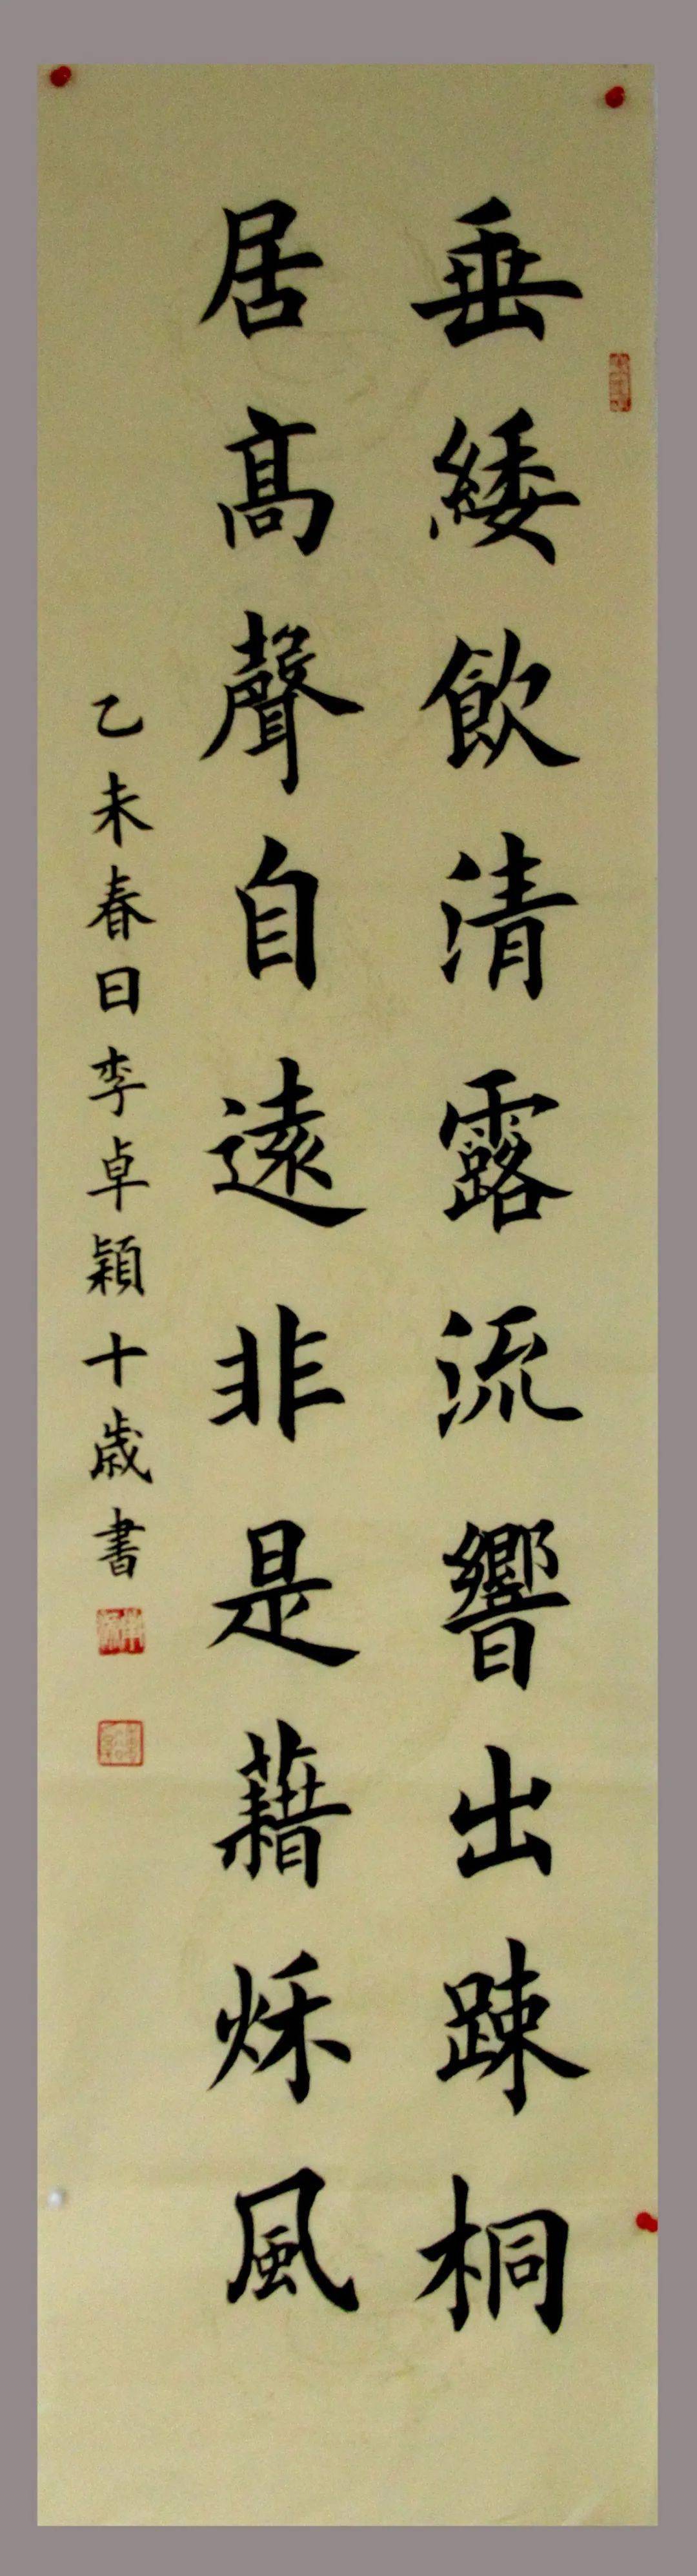 垂緌飲清露流響出疎桐
居高聲自遠非是藉秌風
乙未春日李卓穎十歲書